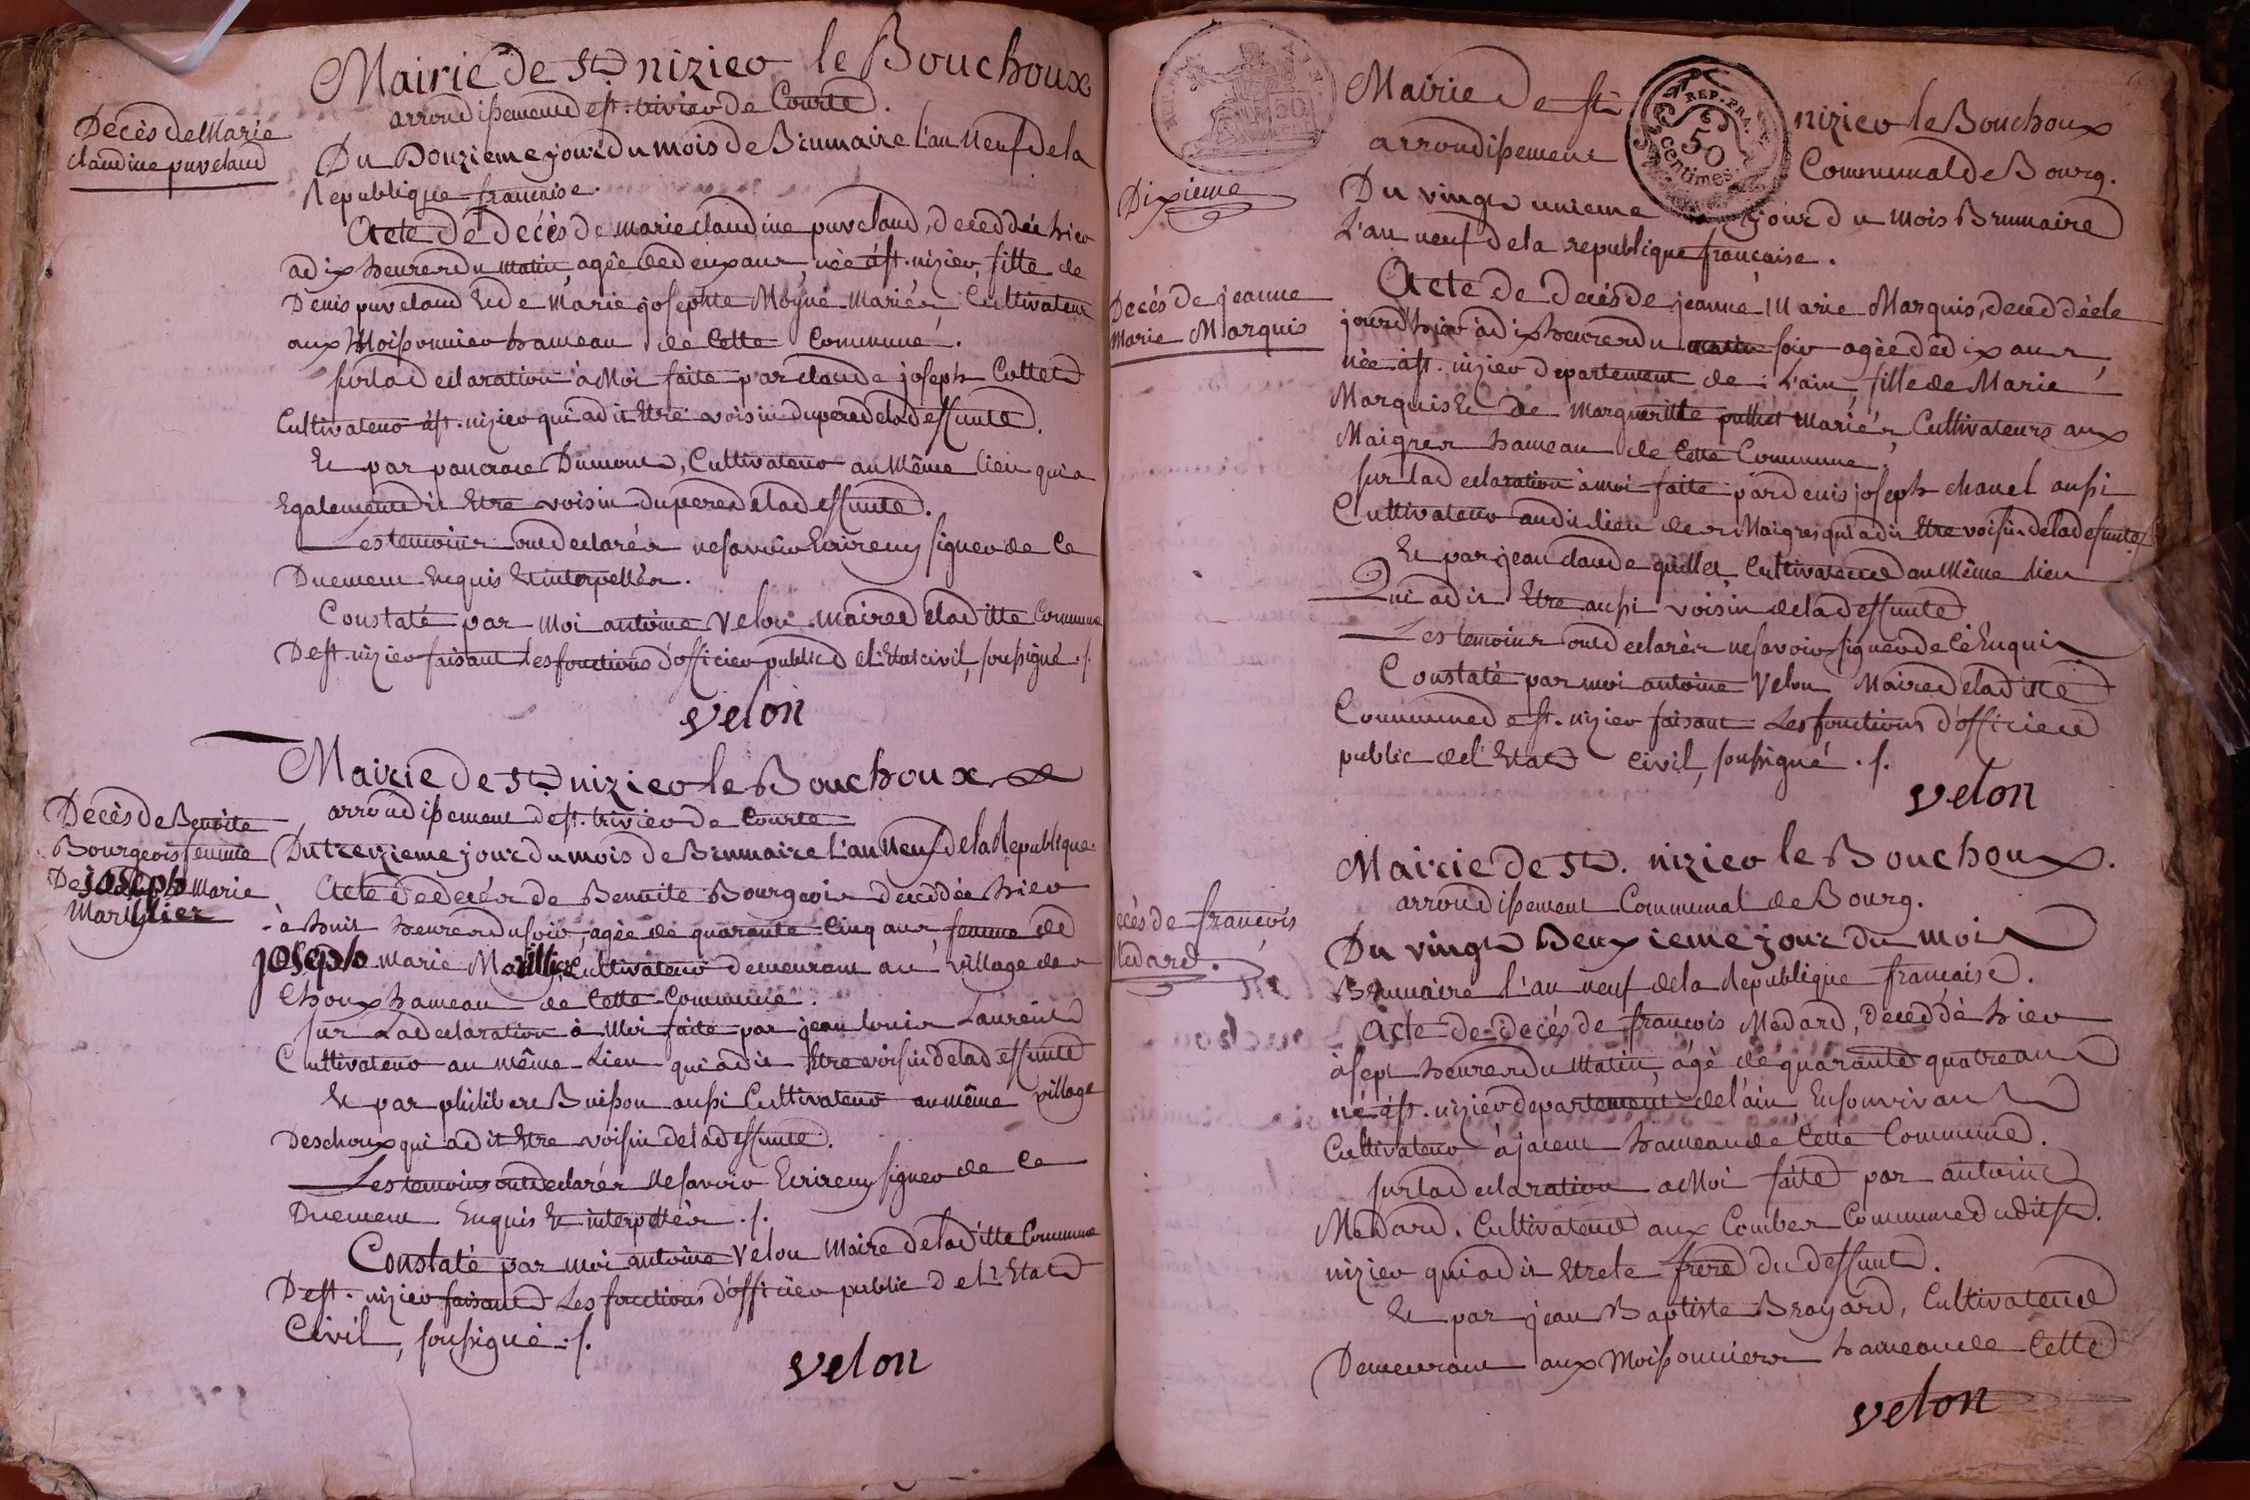 Mairie de St. nizier le Bouchoux
arrondissement de st. trivier de Courte.
Décès de Marie
claudine puvelaud
Du Douzieme jour du mois de Brumaire L'an neuf de la
Republique française.
Acte de décès de marie claudine puvelaud, deceddée hier
a dix heures du matin, agée de deux ans, née á st. nizier, fille de
Denis puvelaud Et de Marie josephte Moyne mariés Cultivateur
aux Moissonnier hameau de Cette Commune.
sur la declaration à Moi faite par claude joseph Collet
Cultivateur á st. nizier qui a dit Etre voisin du pere de la deffunte.
Et par pancrace Dumont, Cultivateur au même lieu qui a
Egalement dit Etre voisin du pere de la deffunte.
Les temoins ont declarés ne savoir Ecrire ny signer de Ce
Duement Enquis Et interpellés.
Constaté par moi antoine Velon maire de la ditte Commune
De st. nizier faisant les fonctions d'officier public de l'Etat civil, soussigné ./.
velon
Mairie de St. nizier le Bouchoux
arrondissement de st. trivier de Courte
Décès de Benoite
Bourgeois femme
De joseph Marie
Marillier
Du treizieme jour du mois de Brumaire L'an Neuf de la Republique
Acte de decés de Benoite Bourgeois decedée hier
à huit heures du soir, agée de quarante Cinq ans, femme de
joseph marie Marillier Cultivateur demeurant au village des
Choux hameau de Cette Commune.
sur La declaration à Moi faite par jean louis Laurent
Cultivateur au même Lieu qui a dit Etre voisin de la deffunte
Et par philibert Buisson aussi Cultivateur au même village
Des choux qui a dit Etre voisin de la deffunte.
Les temoins ont declarés ne savoir Ecrire ny signer de Ce
Duement Enquis Et interpellés ./.
Constaté par moi antoine Velon Maire de la ditte Commune
De st. nizier faisant Les fonctions d'officier public de l'Etat
Civil, soussigné ./.
velon
REP. FRA.
50
centimes
Mairie de st nizier le Bouchoux
arrondissement Communal de Bourg.
Dixieme
Du vingt unieme jour du mois Brumaire
L'an neuf de la republique française.
Decés de jeanne
Marie Marquis
Acte de decés de jeanne Marie Marquis, deceddée le
jourd'hier à dix heures du matin soir agée de dix ans,
née á st. nizier departement de L'ain, fille de Marie
Marquis Et de Margueritte puthet Mariés Cultivateurs aux
Maigres hameau de Cette Commune.
sur la declaration à moi faite par denis joseph chanel aussi
Cultivateur audit lieu des Maigres qui a dit Etre voisin de la defunte.
Et par jean claude guillet, Cultivateur au Même lieu
Qui a dit Etre aussi voisin de la deffunte
Les temoins ont declarés ne savoir signer de Cé Enquis
Constaté par moi antoine Velon Maire de la ditte
Commune de st. nizier faisant Les fonctions d'officier
public de l'Etat Civil, soussigné ./.
velon
Mairie de St. nizier le Bouchoux.
arrondissement Communal de Bourg.
ecès de françois
Medard.
Du vingt Deuxieme jour du mois
Brumaire l'an neuf de la Republique française.
Acte de decés de françois Medard, deceddé hier
à sept heures du Matin, agé de quarante quatre ans
né á st. nizier departement de l'ain, En son vivant
Cultivateur à jacem hameau de Cette Commune.
sur la declaration a Moi faite par antoine
Medard, Cultivateur aux Combes Commune dudit st.
nizier qui a dit Etre le frere du deffunt.
Et par jean Baptiste Broyard, Cultivateur
Demeurant aux Moissonniers hameau de Cette
velon